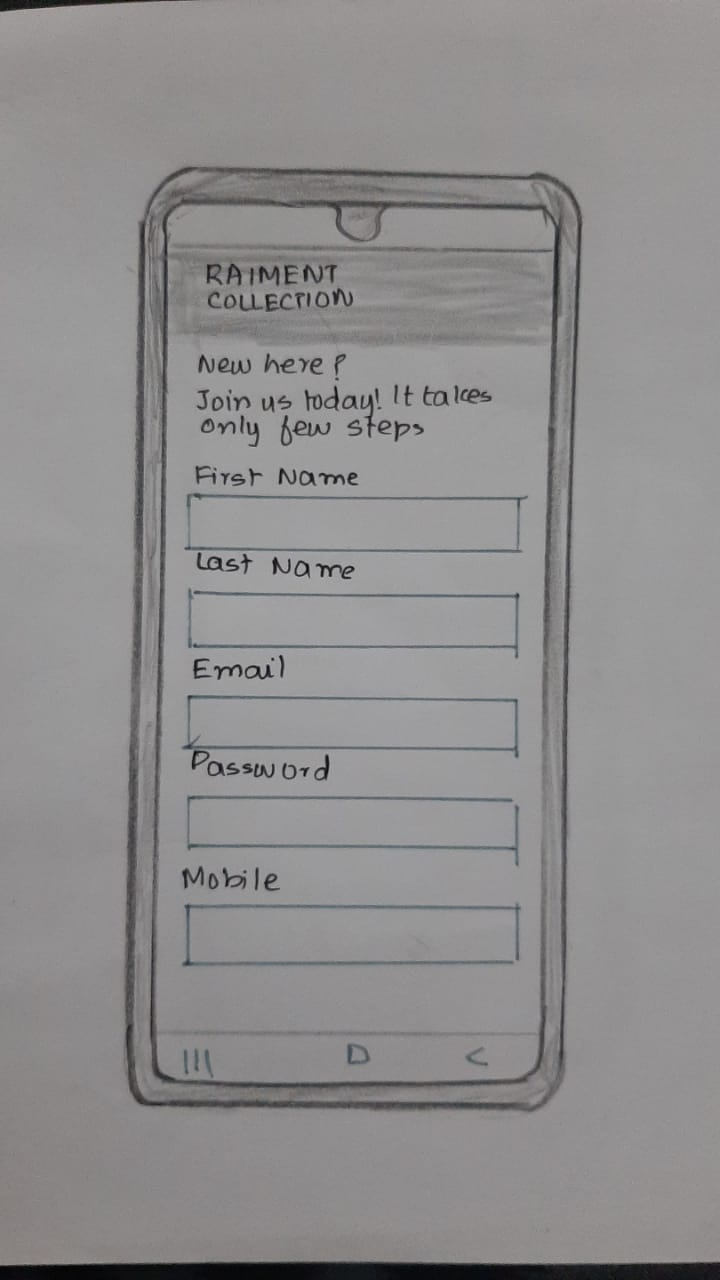 RAIMENT
COLLECTION
New here?
Join us today! It takes
only few steps
First Name
Last Name
Email
Password
Mobile